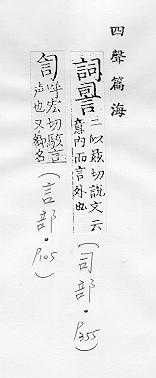 四聲篇海
詞䛐二似玆切說文云
意內而言外也(司部·P355)
訇呼宏切駭言
聲也又縣名(言部·P105)